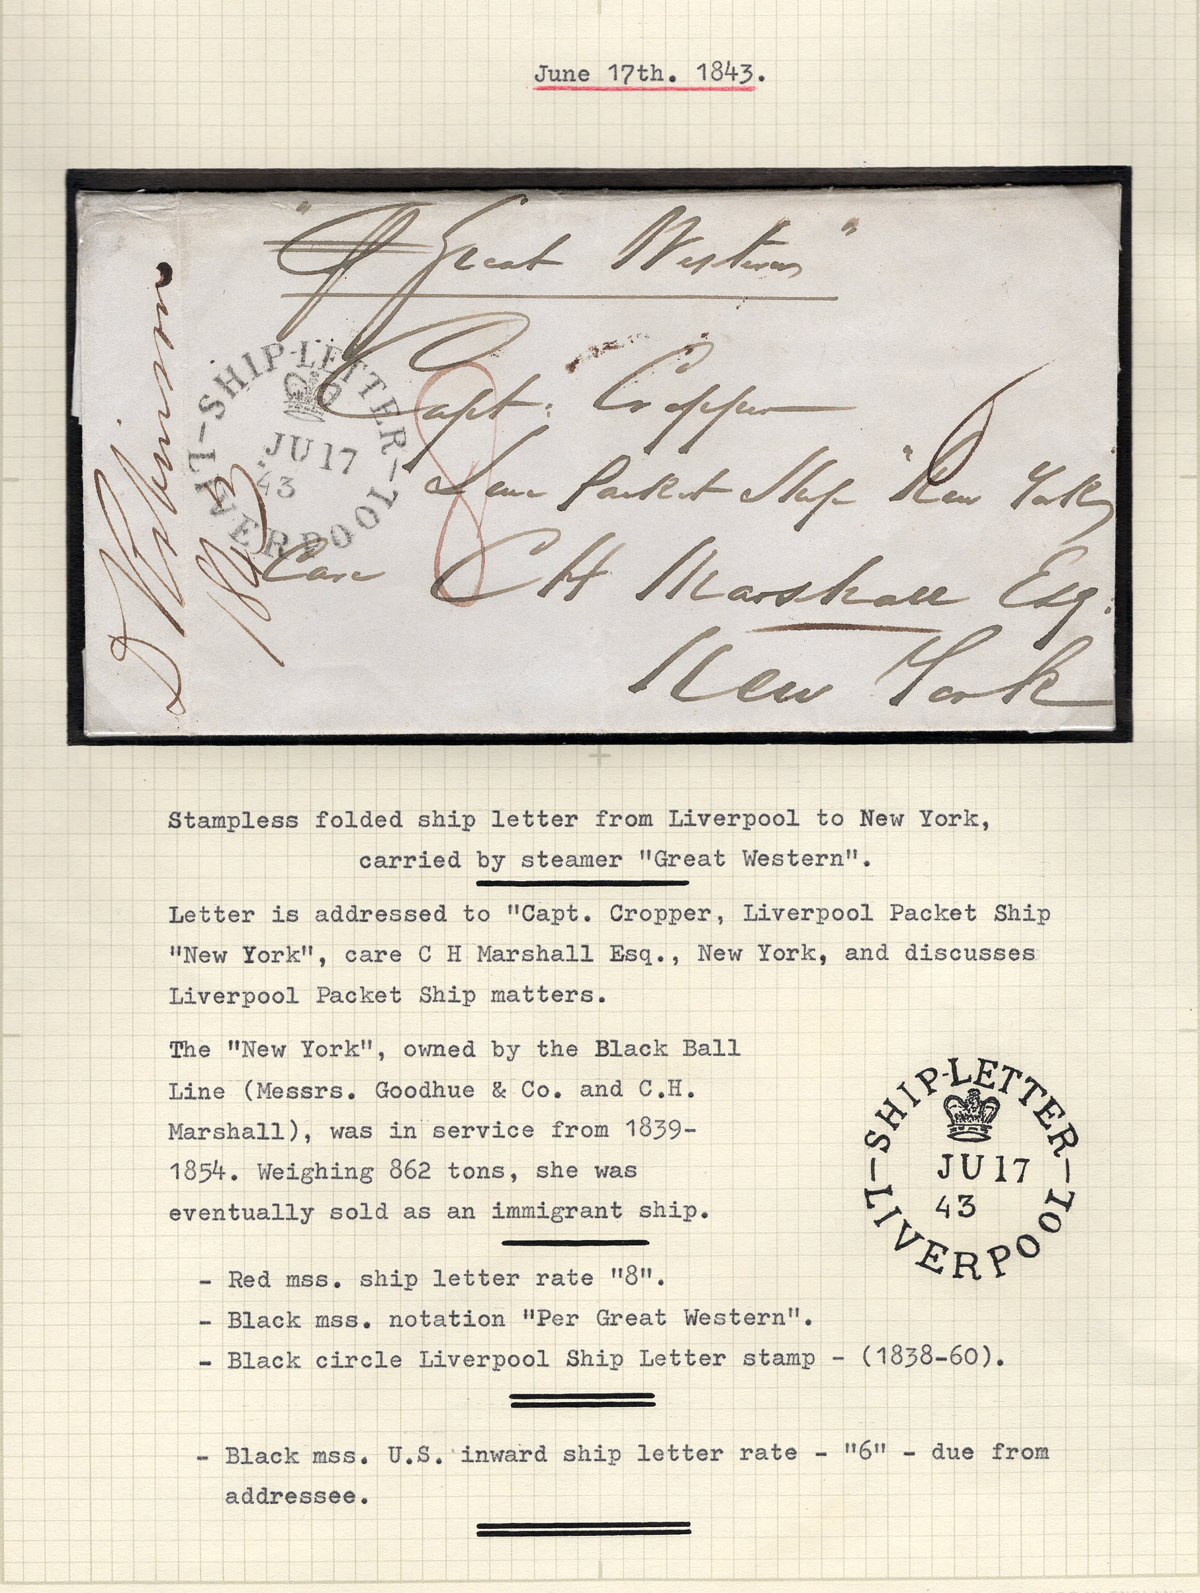 June 17th. 1843.
"P Great Western"
Capt. Cropper
Packet Ship "New York"
Care CH Marshall Esq.
New York
Robinson
1843
SHIP-LETTER
JU 17
43
LIVERPOOL
8
6
Stampless folded ship letter from Liverpool to New York,
carried by steamer "Great Western".
Letter is addressed to "Capt. Cropper, Liverpool Packet Ship
"New York", care C H Marshall Esq., New York, and discusses
Liverpool Packet Ship matters.
The "New York", owned by the Black Ball
Line (Messrs. Goodhue & Co. and C.H.
Marshall), was in service from 1839-
1854. Weighing 862 tons, she was
eventually sold as an immigrant ship.
SHIP-LETTER
JU 17
43
LIVERPOOL
- Red mss. ship letter rate "8".
- Black mss. notation "Per Great Western".
- Black circle Liverpool Ship Letter stamp - (1838-60).
- Black mss. U.S. inward ship letter rate - "6" - due from
addressee.